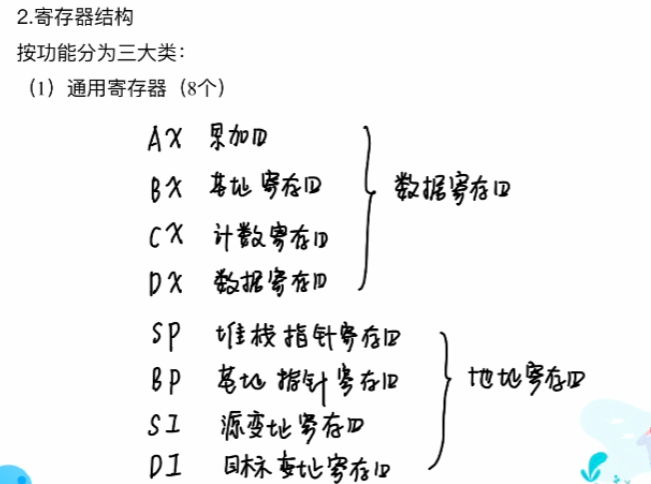 2.寄存器结构
按功能分为三大类：
（1）通用寄存器（8个）
AX 累加器
BX 基址寄存器
CX 计数寄存器
DX 数据寄存器
数据寄存器
SP 堆栈指针寄存器
BP 基址指针寄存器
SI 源变址寄存器
DI 目标变址寄存器
地址寄存器